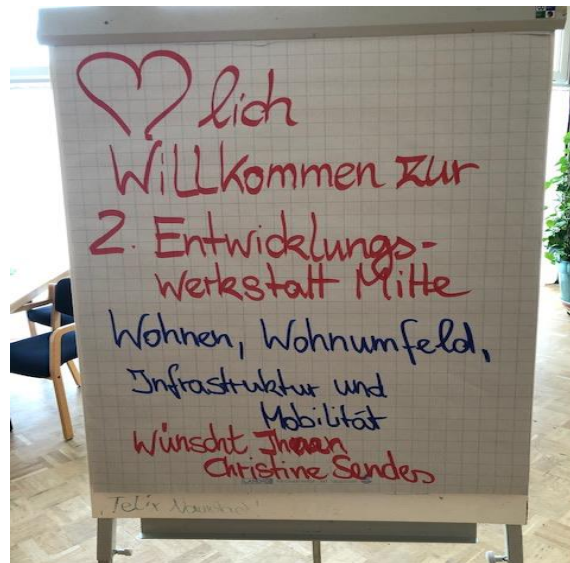 lich
Willkommen zur
2. Entwicklungs-
Werkstatt Mitte
Wohnen, Wohnumfeld,
Infrastruktur und
Mobilität
Wünscht Ihnen
Christine Sendes
Felix